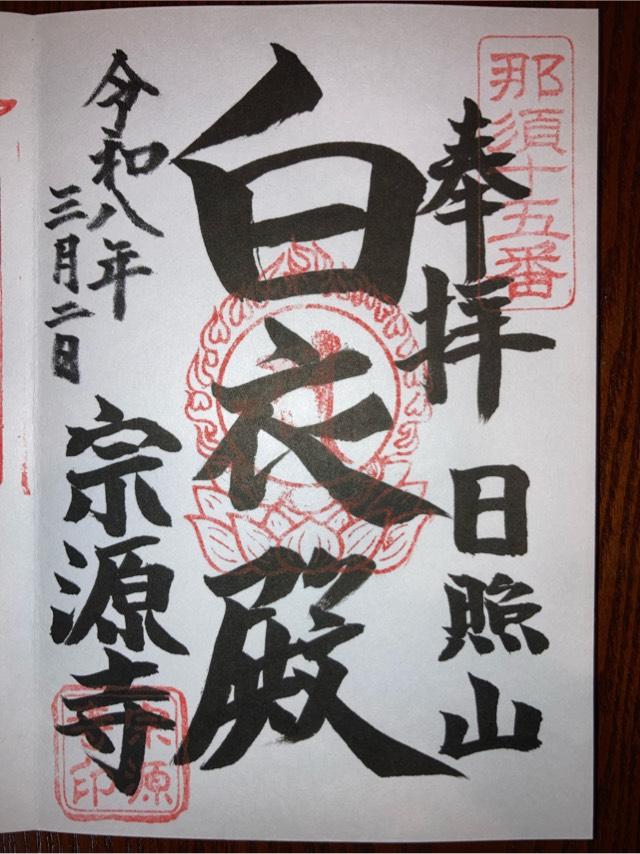 那須十五番
奉拝
日照山
白衣殿
令和八年
三月二日
宗源寺
宗源寺印